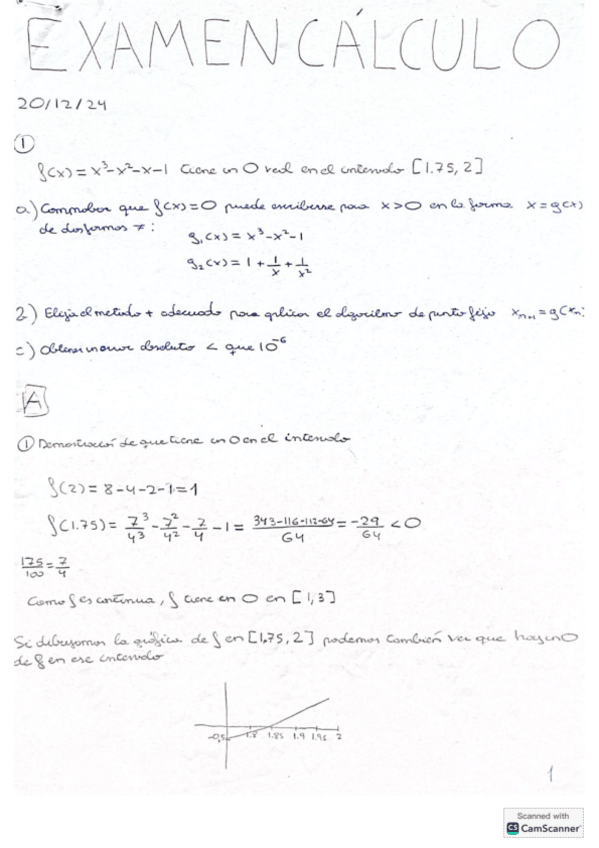 EXAMEN CÁLCULO
20/12/24
①
f(x) = x³-x²-x-1 tiene un 0 real en el intervalo [1.75, 2]
a) Comprobar que f(x)=0 puede escribirse para x>0 en la forma x=g(x)
de dos formas ≠:
g₁(x) = x³-x²-1
g₂(x) = 1 + 1/x + 1/x²
2) Elija el metodo + adecuado para aplicar el algoritmo de punto fijo xₙ₊₁=g(xₙ)
c) Obtener un error absoluto < que 10⁻⁶
A
① Demostración de que tiene un 0 en el intervalo
f(2) = 8-4-2-1=1
f(1.75) = 7³/4³ - 7²/4² - 7/4 - 1 = 343-116-112-64/64 = -29/64 < 0
175/100 = 7/4
Como f es continua, f tiene en 0 en [1,3]
Si dibujamos la gráfica de f en [1,75, 2] podemos también ver que hay un 0
de f en ese intervalo
-0,5 1.8 1.85 1.9 1.95 2
1
Scanned with
CS CamScanner